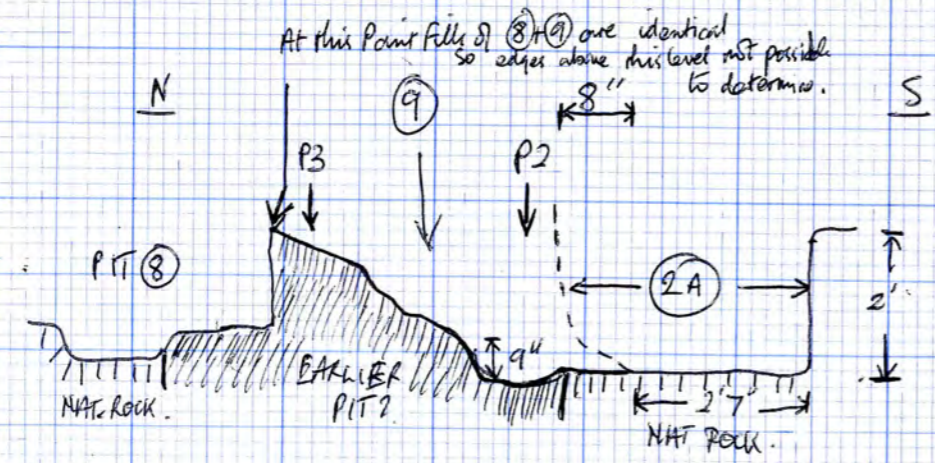 At this Point fills of ⑧+⑨ are identical
so edges above this level not possible
to determine.
N
⑨
8"
S
P3
P2
PIT ⑧
2A
2'
9"
EARLIER
PIT?
2'7"
NAT. ROCK.
NAT ROCK.